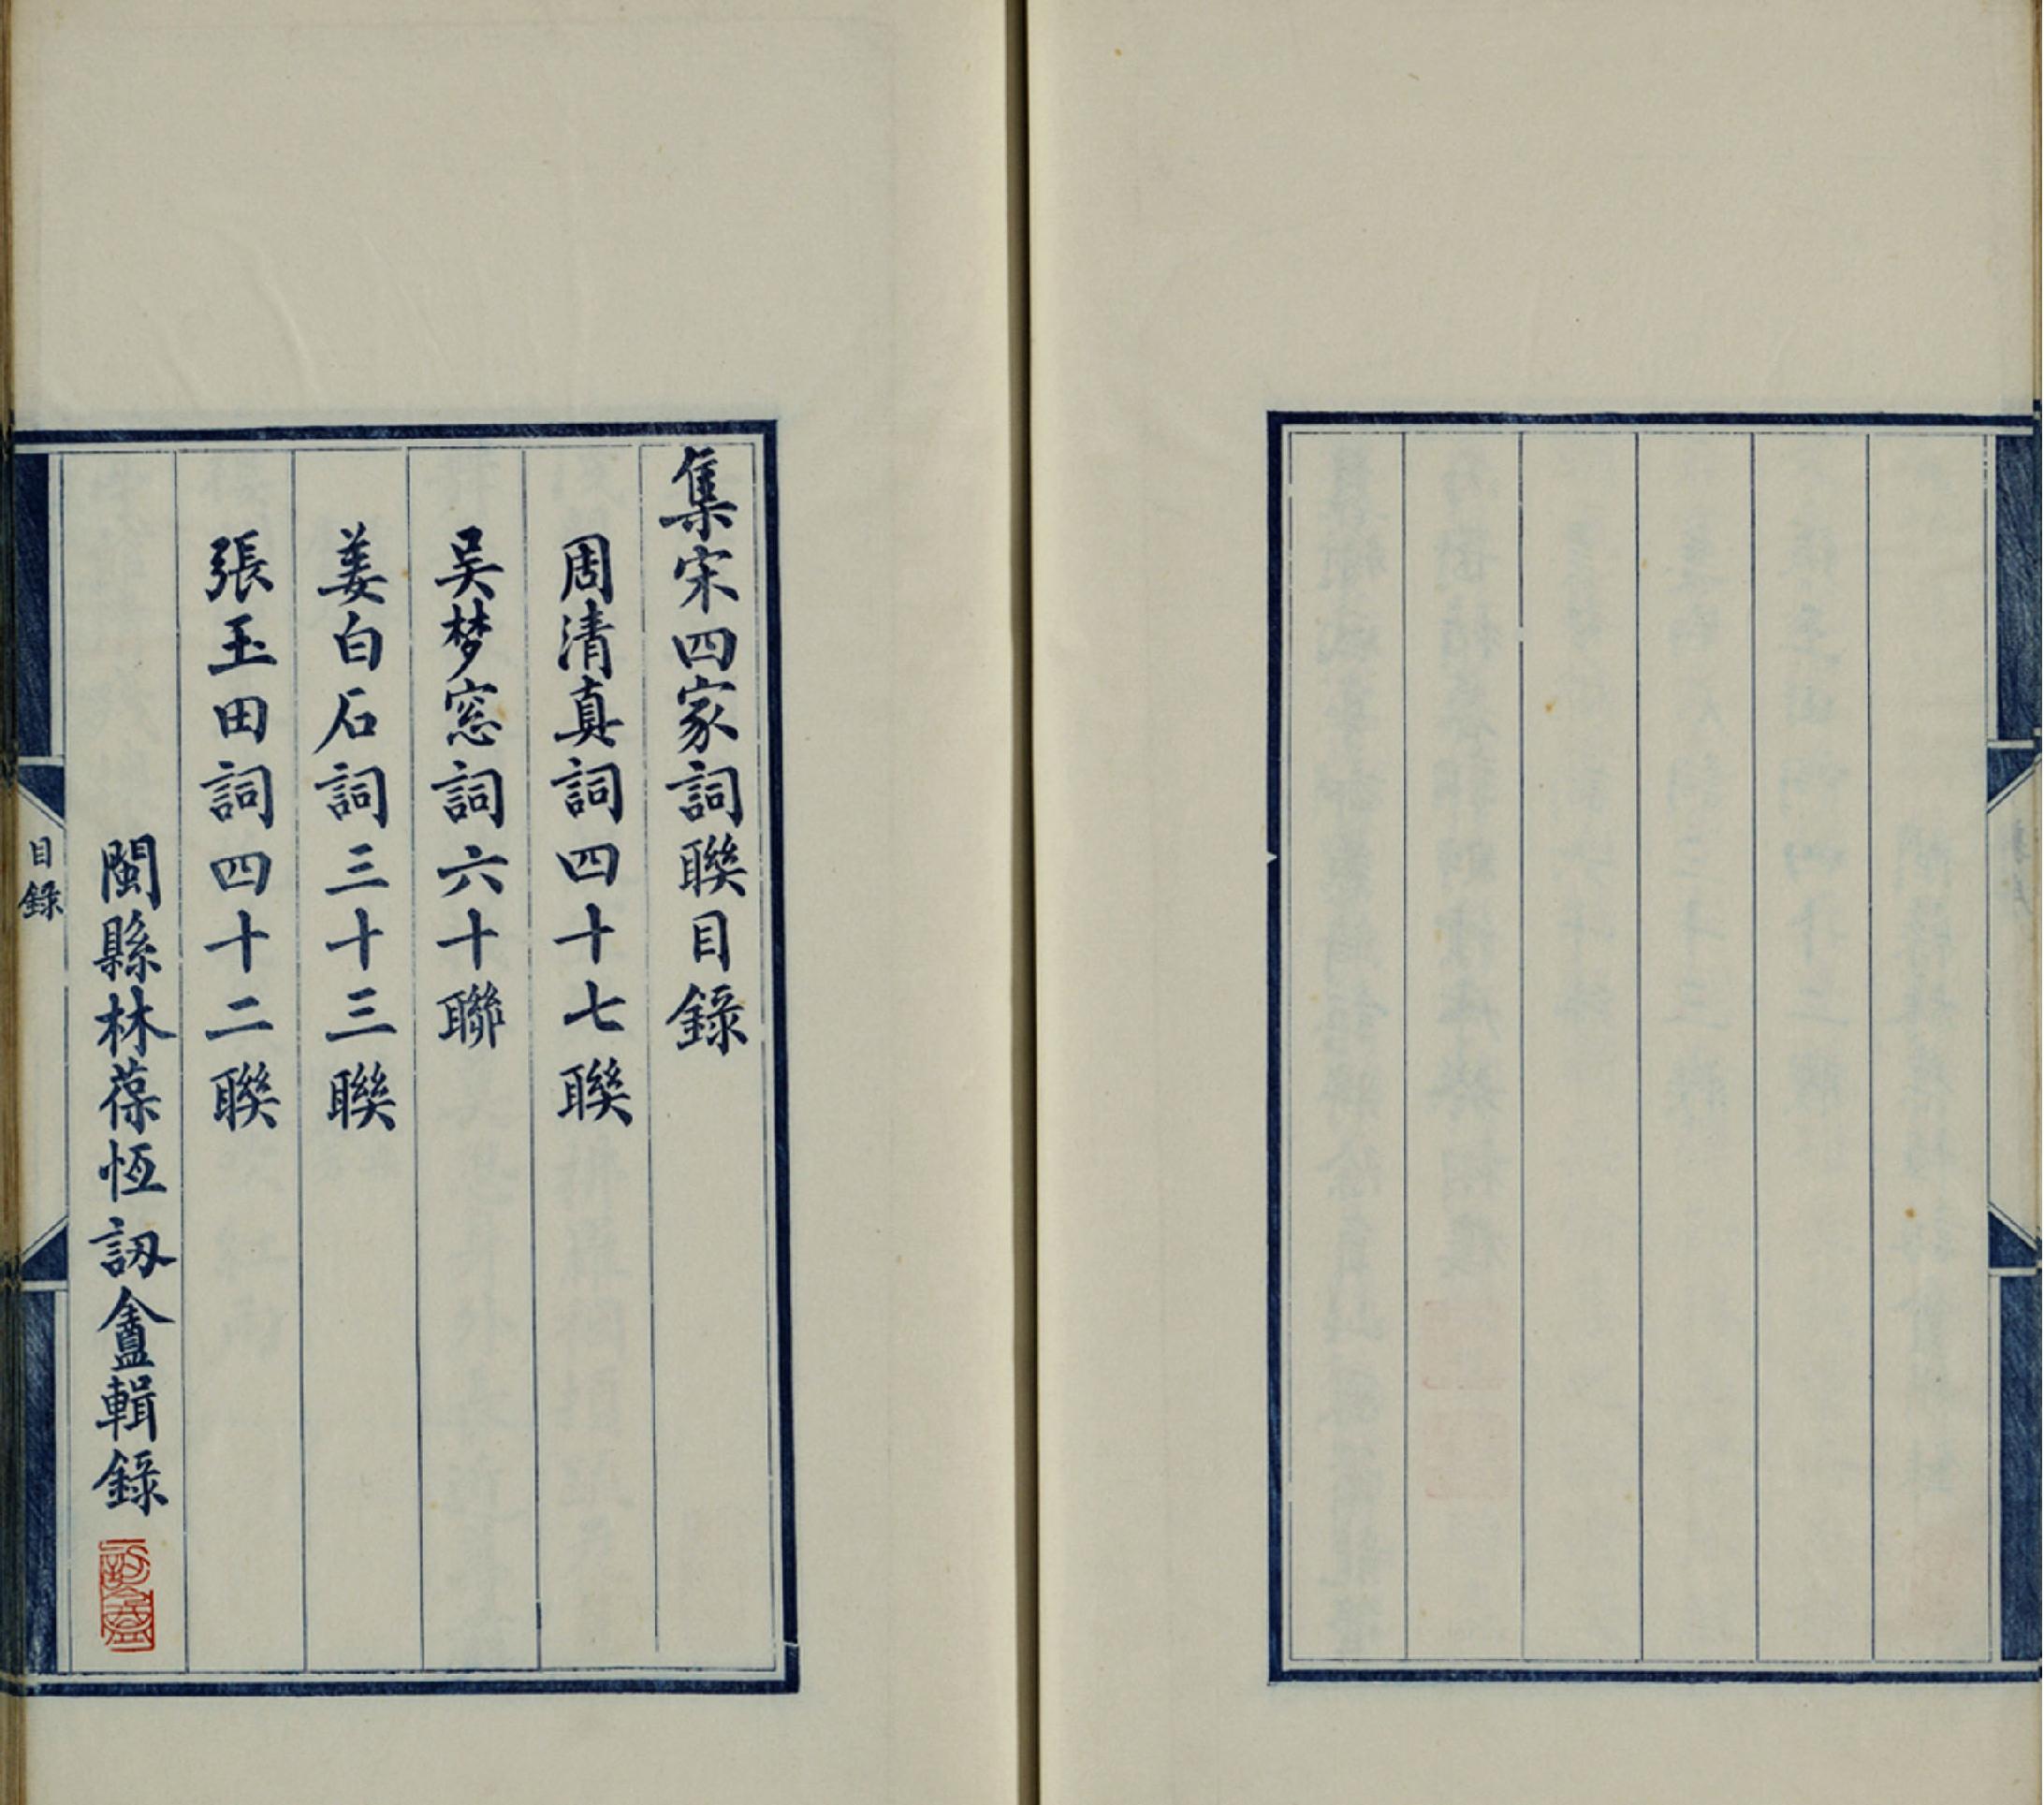 集宋四家詞聯目錄
周清真詞四十七聯
吴梦窓詞六十聯
姜白石詞三十三聯
張玉田詞四十二聯
閩縣林葆恆訒盦輯錄
訒盦
目錄